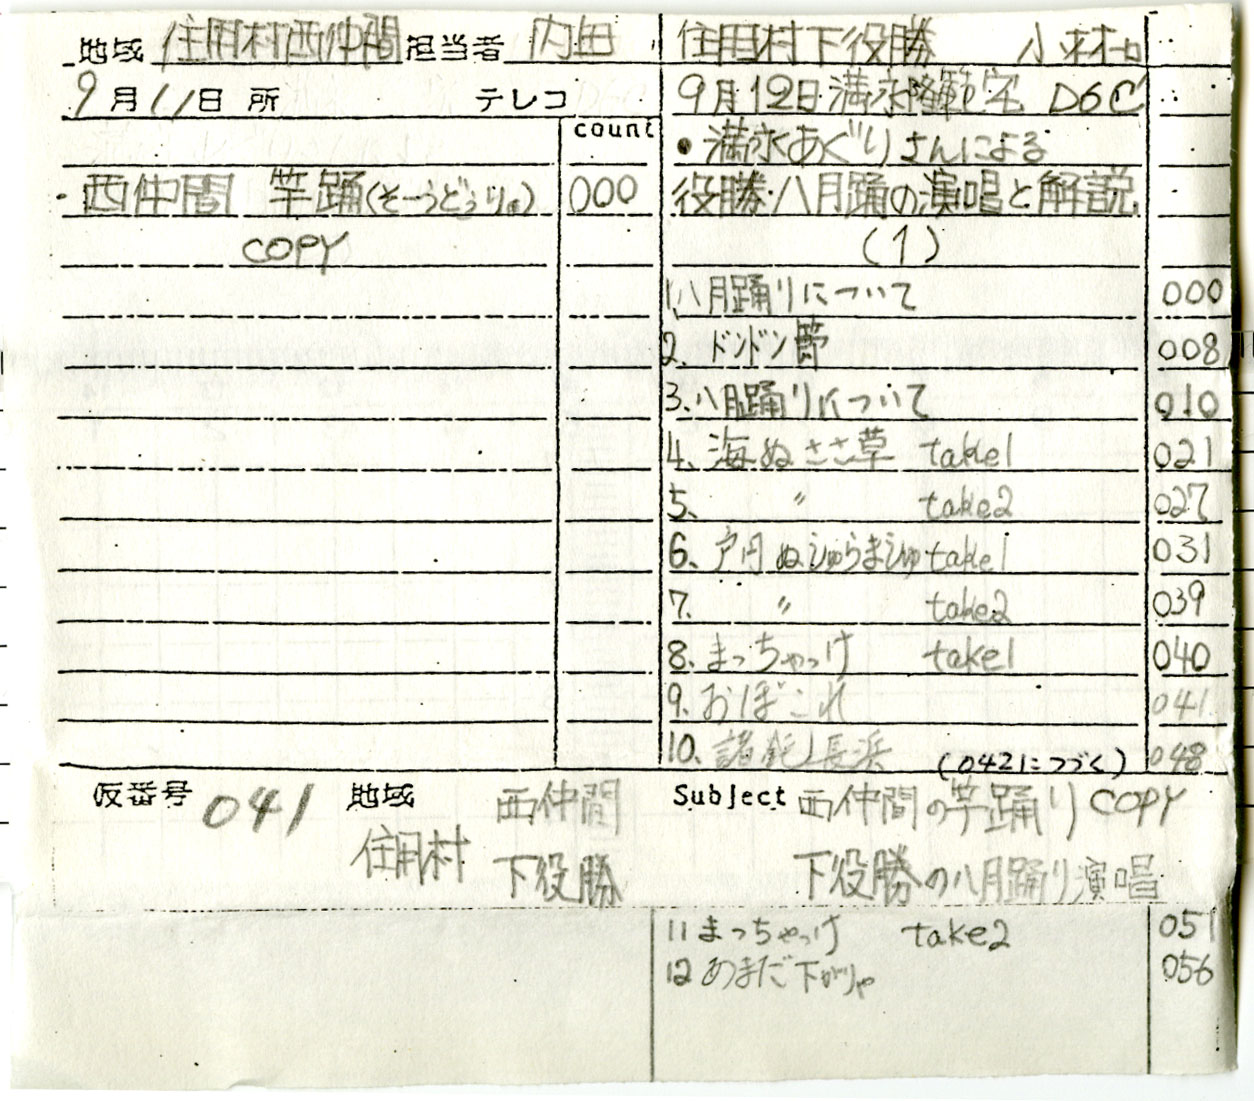 地域 住用村西仲間 担当者 内田
9月11日 所 テレコ
count
・西仲間 竿踊(そーうどぅりゅ) 000
COPY
住用村下役勝 小林
9月12日 満永 宅 D6C
•満永あぐりさんによる
役勝・八月踊の演唱と解説
(1)
1.八月踊りについて 000
2.ドンドン節 008
3.八月踊りについて 010
4.海ぬささ草 take1 021
5. 〃 take2 027
6.戸円ぬしゅらましゅ take1 031
7. 〃 take2 039
8.まっちゃっけ take1 040
9.おぼこれ 041
10.諸鈍長浜 (042につづく) 048
仮番号 041 地域 住用村 西仲間 下役勝
Subject 西仲間の竿踊り COPY
下役勝の八月踊り演唱
11まっちゃっけ take2 051
12あまだ下がりゃ 056